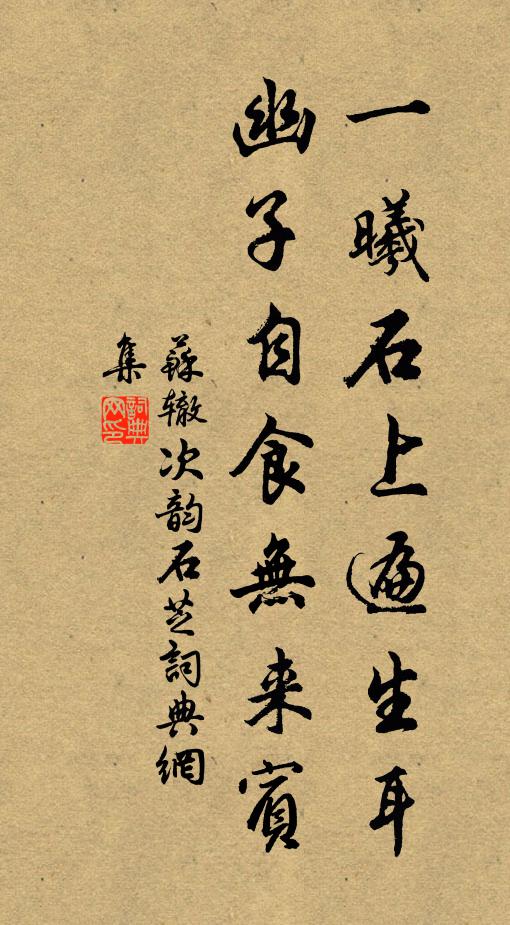 一曦石上遍生耳
幽子自食無来賓
蘇辙次韵石芝詞典網
集
詞典网印